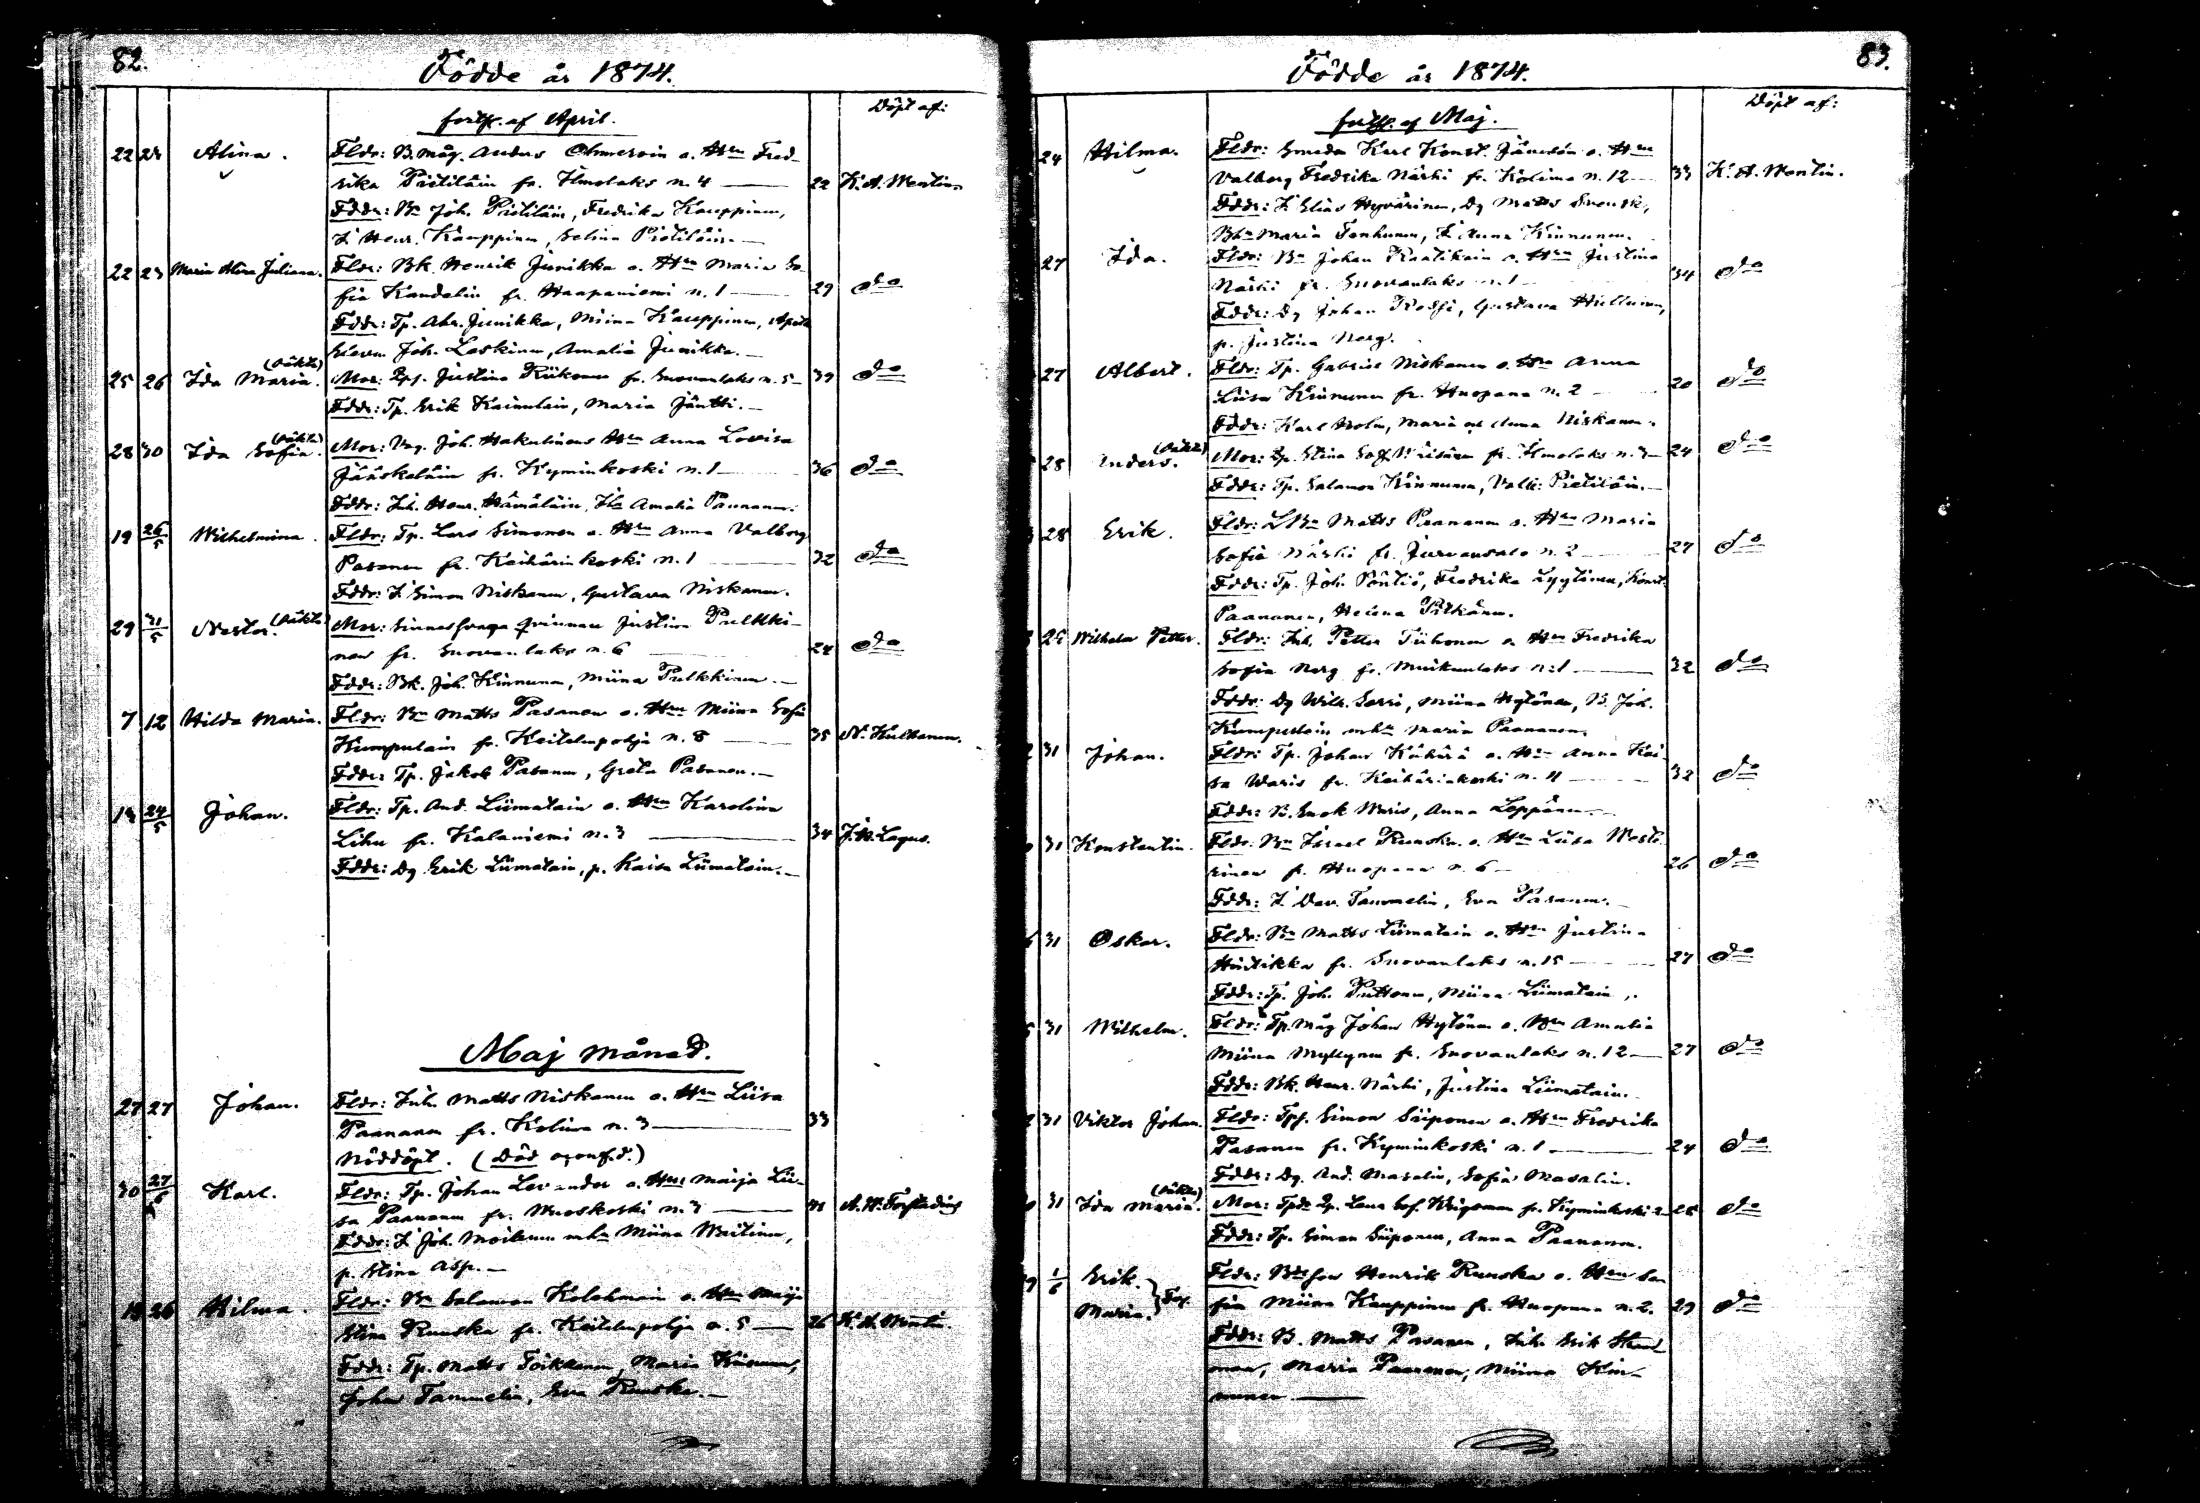 82.
Födde år 1874.
Döpt af:
forts. af April.
22 24 Alina. Fldr: B. måg. Anders Ohmeroin o. Hru Fred-
rika Pietiläin fr. Ilmolaks n. 4 — 22 K. A. Wentin.
Fddr: Bn Joh. Pietiläin, Fredrika Kauppinen,
I. Henr. Kauppinen, Selina Pietiläin. —
22 23 Maria Alina Juliana. Fldr: Bk. Henrik Junikka o. Hru Maria So-
fia Kandelin fr. Haapaniemi n. 1 — 29 do
Fddr: Tp. Abr. Junikka, Miina Kauppinen,
Eleven Joh. Laskinen, Amalia Junikka. —
25 26 Ida Maria. (oäkta) Mor: Lps. Justina Riikonen fr. Suovanlaks n. 5 — 39 do
Fddr: Tp. Erik Kainulain, Maria Jäntti. —
28 30 Ida Sofia. (oäkta) Mor: Joh. Hakulinens Hru Anna Lovisa
Jääskeläin fr. Kyminkoski n. 1 — 36 do
Fddr: Inh. Henr. Hämäläin, Amalia Paananen.
19 26/5 Wilhelmina. Fldr: Tp. Lars Simonen o. Hru Anna Valborg
Pasanen fr. Keihärinkoski n. 1 — 32 do
Fddr: I. Simon Niskanen, Gustava Niskanen.
29 31/5 Nestor. (oäkta) Mor: Sinnessvaga qvinnan Justina Pulkki-
nen fr. Suovanlaks n. 6 — 24 do
Fddr: Bk. Joh. Kinnunen, Miina Pulkkinen. —
7 12 Hilda Maria. Fldr: Bn Matts Pasanen o. Hru Miina Sofia
Kumpulain fr. Keitelepohja n. 8 — 35 N. Kulhanen.
Fddr: Tp. Jakob Pasanen, Greta Pasanen. —
19 24/5 Johan. Fldr: Tp. And. Liimatain o. Hru Karolina
Lihu fr. Kalaniemi n. 3 — 34 J. W. Lagus.
Fddr: Dg Erik Liimatain, p. Kaisa Liimatain. —
Maj månad.
27 27 Johan. Fldr: Inh. Matts Niskanen o. Hru Liisa
Paananen fr. Kolima n. 3 — 33
Nöddöpt. (Död ogonf. d.)
30 27/6 Karl. Fldr: Tp. Johan Levander o. Hru Maija Lii-
sa Paananen fr. Wuoskoski n. 3 — 41 A. W. Forstadius
Fddr: I. Joh. Moilanen m. hu Miina Waitinen,
p. Stina Asp. —
19 26 Hilma. Fldr: Bn Salomon Kolehmain o. Hru Maija
Stina Ruuska fr. Keitelepohja n. 5 — 26 K. A. Wentin.
Fddr: Tp. Matts Toikkanen, Maria Kinnunen,
Johan Tammelin, Eva Ruuska. —
83.
Födde år 1874.
Döpt af:
forts. af Maj.
24 Hilma. Fldr: Smeden Karl Konst. Jäntén o. Hru
Valborg Fredrika Närhi fr. Kolima n. 12 — 33 K. A. Wentin.
Fddr: I. Elias Hyvärinen, Dg Matts Svensk,
Maria Tenhunen, I. Anna Kinnunen.
27 Ida. Fldr: Bn Johan Raatikain o. Hru Justina
Närhi fr. Suovanlaks n. 1 34 do
Fddr: Dg Johan Rossi, Gustava Hiltunen,
p. Justina Norg.
27 Albert. Fldr: Tp. Gabriel Niskanen o. Hru Anna
Liisa Kinnunen fr. Huopana n. 2 20 do
Fddr: Karl Holm, Maria och Anna Niskanen.
28 Anders. (oäkta) Mor: Lp. Stina Sof. Wäisänen fr. Ilmolaks n. 3 — 24 do
Fddr: Tp. Salomon Kinnunen, Valb: Pietiläin. —
28 Erik. Fldr: LBn Matts Paananen o. Hru Maria
Sofia Närhi fr. Jurvansalo n. 2 — 27 do
Fddr: Tp. Joh. Pöntiö, Fredrika Lyytinen, Konst.
Paananen, Helena Pitkänen.
Wilhelm Petter. Fldr: Inh. Petter Tiihonen o. Hru Fredrika
Sofia Norg fr. Muikunlaks n. 1 — 32 do
Fddr: Dg Wilh. Sorri, Miina Hytönen, B. Joh.
Kumpulain m. hu Maria Paananen.
31 Johan. Fldr: Tp. Johan Kähärä o. Hru Anna Kai-
sa Waris fr. Keihärinkoski n. 11 — 32 do
Fddr: B. Enok Waris, Anna Leppänen. —
31 Konstantin. Fldr: Bn Israel Ruuska o. Hru Liisa Weste-
rinen fr. Huopana n. 6 — 26 do
Fddr: I. Dav. Tammelin, Eva Pasanen. —
31 Oskar. Fldr: Bn Matts Liimatain o. Hru Justina
Hintikka fr. Suovanlaks n. 15 — 27 do
Fddr: Tp. Joh. Puttonen, Miina Liimatain.
31 Wilhelm. Fldr: Tp. Måg Johan Hytönen o. Hru Amalia
Miina Myllynen fr. Suovanlaks n. 12 — 27 do
Fddr: Bk. Henr. Närhi, Justina Liimatain.
31 Viktor Johan. Fldr: Tps. Simon Siiponen o. Hru Fredrika
Pasanen fr. Kyminkoski n. 1 — 24 do
Fddr: Dg. And. Masalin, Sofia Masalin.
31 Ida Maria. (oäkta) Mor: Lp. Laura Sof. Krigsman fr. Kyminkoski 25 do
Fddr: Tp. Simon Siiponen, Anna Paananen.
1/6 Erik. Maria. } Fldr: Henrik Ruuska o. Hru So-
fia Miina Kauppinen fr. Huopana n. 2. 29 do
Fddr: B. Matts Pasanen, Inh. Erik
Maria Paananen, Miina Kin-
nunen —